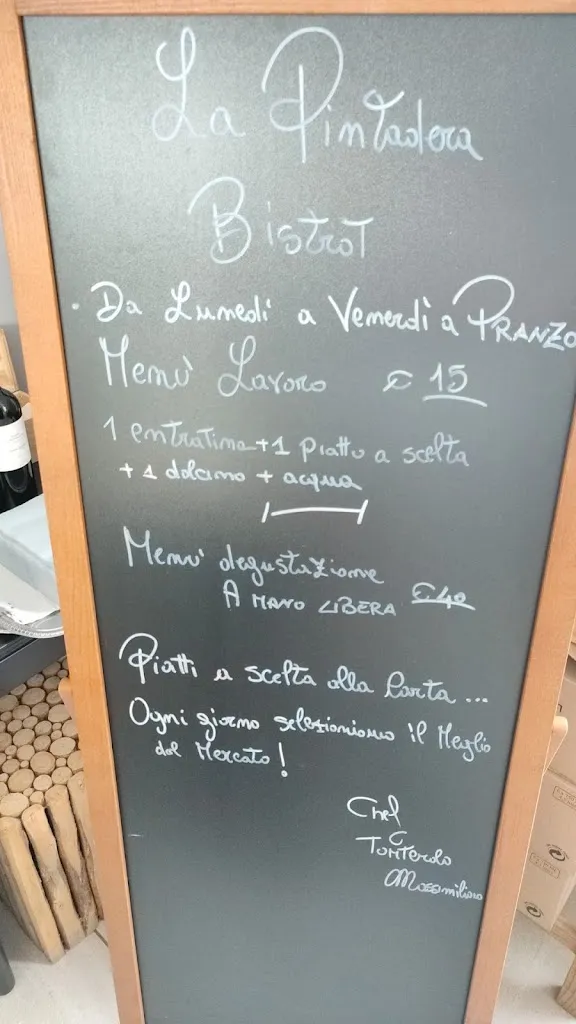 La Pintadera
Bistrot
• Da Lunedì a Venerdì a PRANZO
Menù Lavoro € 15
1 entratina + 1 piatto a scelta
+ 1 dolcino + acqua
Menù degustazione
A MANO LIBERA € 40
Piatti a scelta alla Carta ...
Ogni giorno selezioniamo il Meglio
dal Mercato!
Chef
Tonterdo
Massimiliano